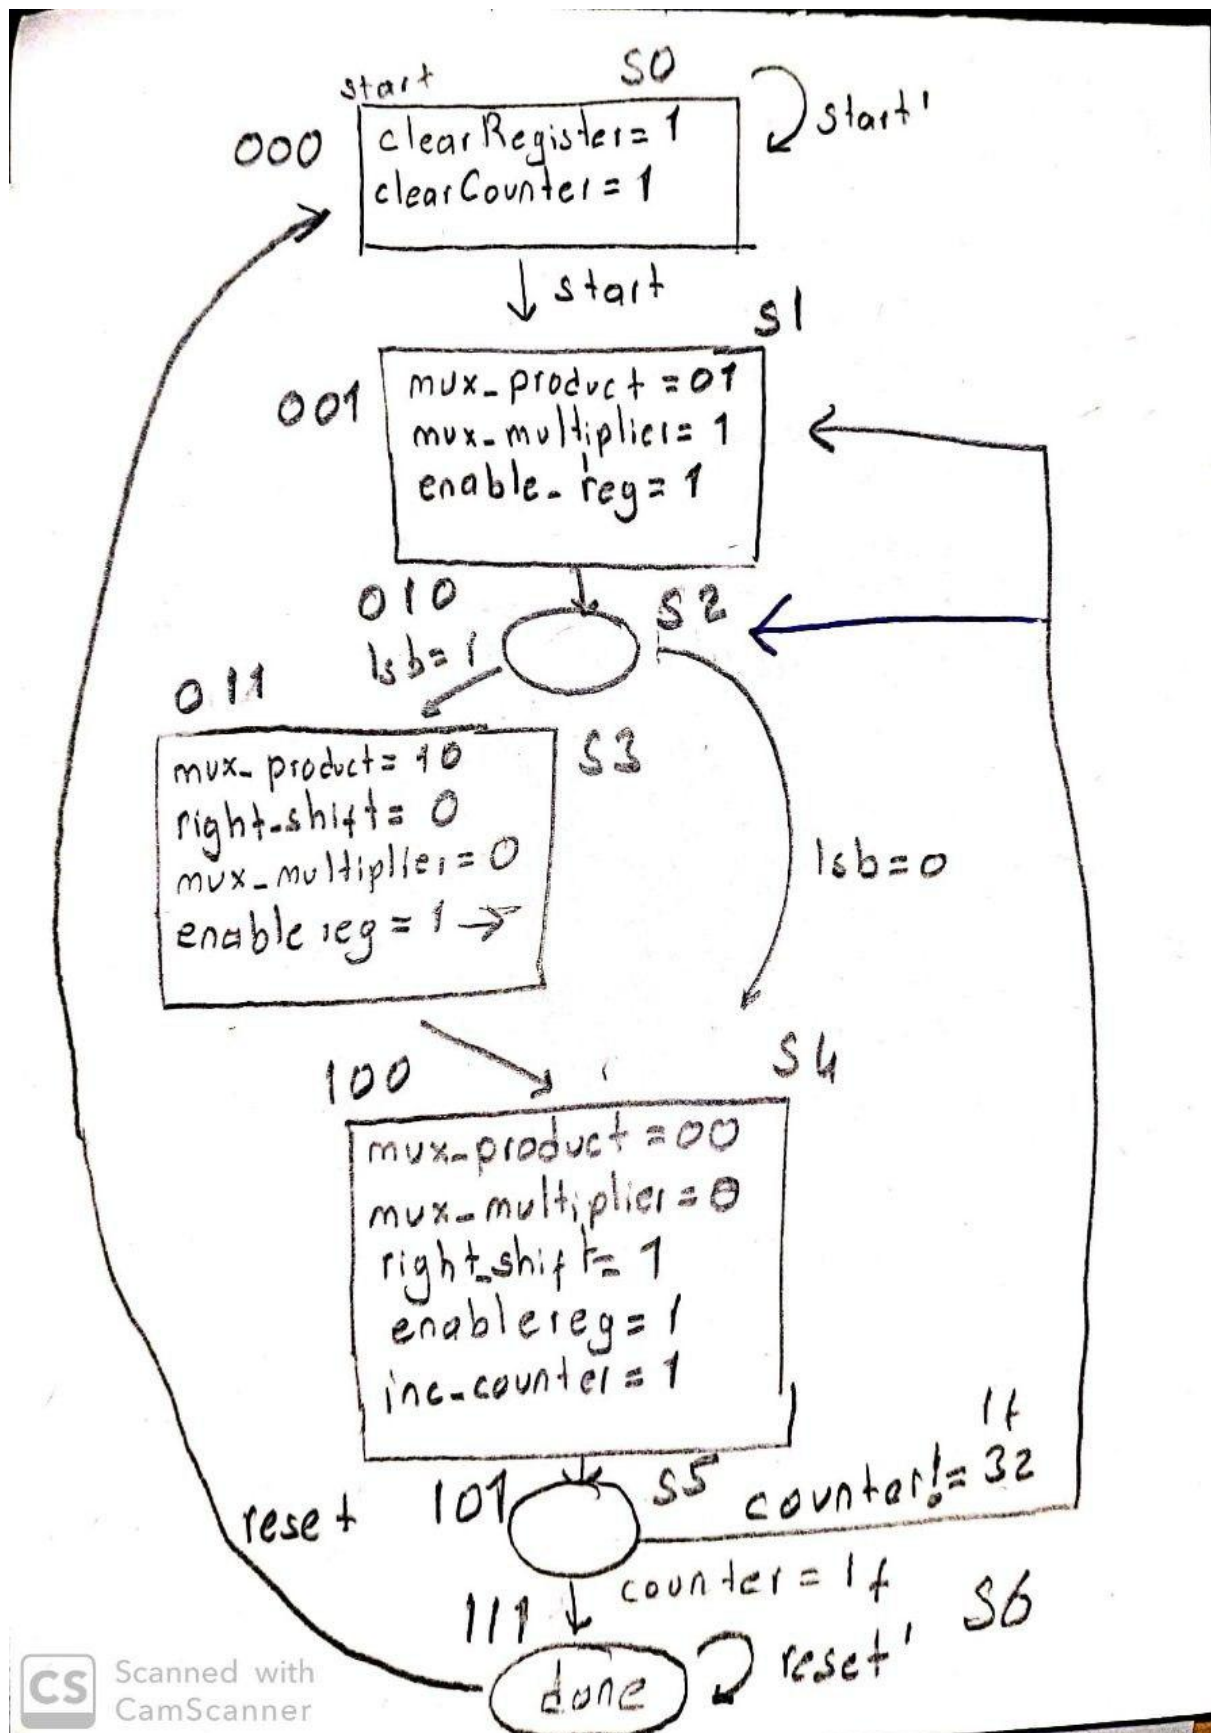 start
S0
start'
000
clearRegister= 1
clearCounter = 1
start
S1
001
mux_product = 01
mux_multiplier= 1
enable_reg = 1
010
S2
lsb= 1
011
S3
mux_product= 10
right_shift= 0
mux_multiplier= 0
enable reg = 1 →
lsb=0
100
S4
mux_product = 00
mux_multiplier = 0
right_shift= 1
enablereg = 1
inc_counter = 1
1f
counter!= 32
101
S5
reset
counter = 1f
111
S6
done
reset'
CS
Scanned with
CamScanner